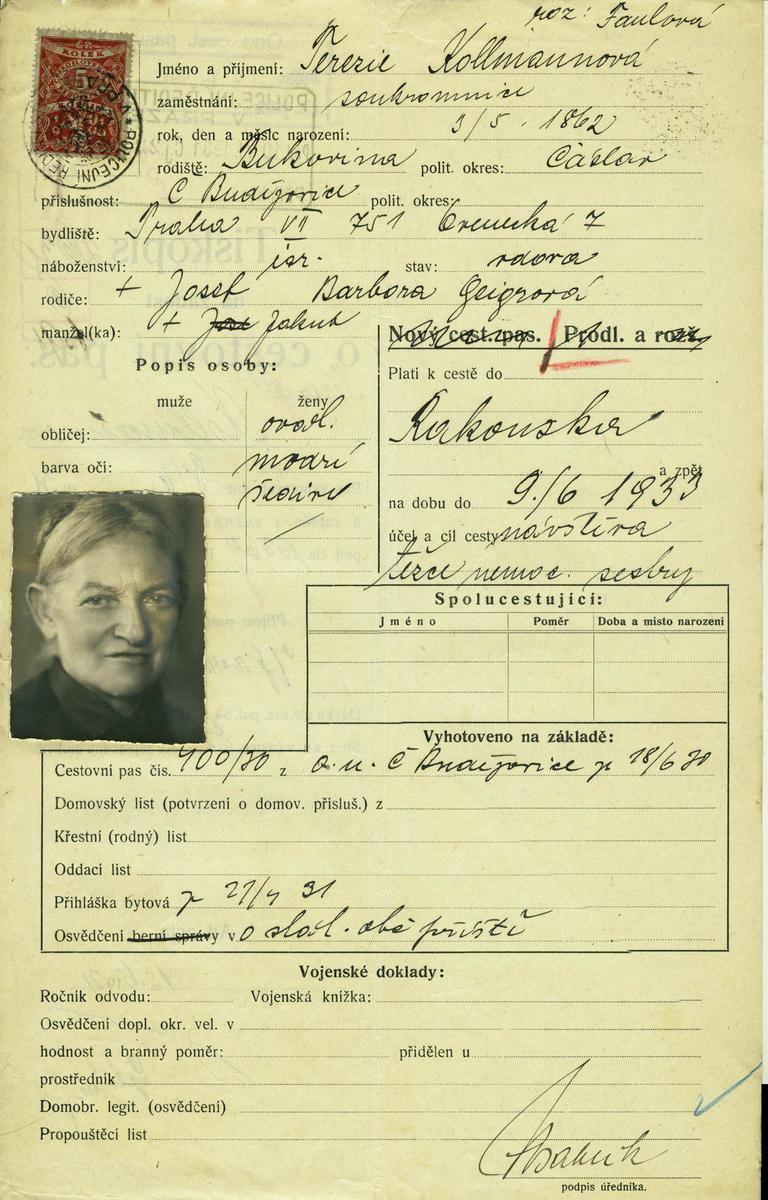 roz: Faulová
Jméno a příjmení: Terezie Kollmannová
zaměstnání: soukromnice
rok, den a měsíc narození: 3/5 . 1862
rodiště: Bukovina polit. okres: Čáslav
příslušnost: Č Budějovice polit. okres:
bydliště: Praha VII 751 Ovenecká 7
náboženství: isr. stav: vdova
rodiče: + Josef Barbora Geigrová
manžel(ka): + Jakub
Nový cest. pas. Prodl. a rozš.
Popis osoby:
Platí k cestě do
muže ženy
Rakouska
obličej: oval.
barva očí: modrí
a zpět
šedivé
na dobu do 9./6 1933
účel a cíl cesty návštěva
těžce nemoc. sestry
Spolucestující:
Jméno Poměr Doba a místo narození
Vyhotoveno na základě:
Cestovní pas čís. 400/30 z o. u. Č Budějovice z 18/6 30
Domovský list (potvrzení o domov. přísluš.) z
Křestní (rodný) list
Oddací list
Přihláška bytová z 27/4 31
Osvědčení berní správy v o stát. obč
Vojenské doklady:
Ročník odvodu: Vojenská knížka:
Osvědčení dopl. okr. vel. v
hodnost a branný poměr: přidělen u
prostředník
Domobr. legit. (osvědčení)
Propouštěcí list
podpis úředníka.